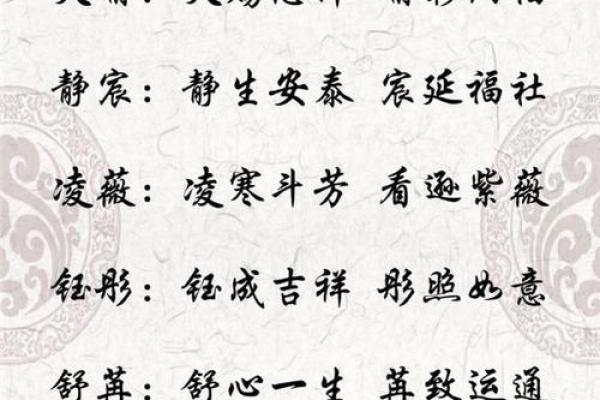 静宸：静生安泰 宸延福社
凌薇：凌寒斗芳 看逊紫薇
钰彤：钰成吉祥 彤照如意
舒苒：舒心一生 苒致运通